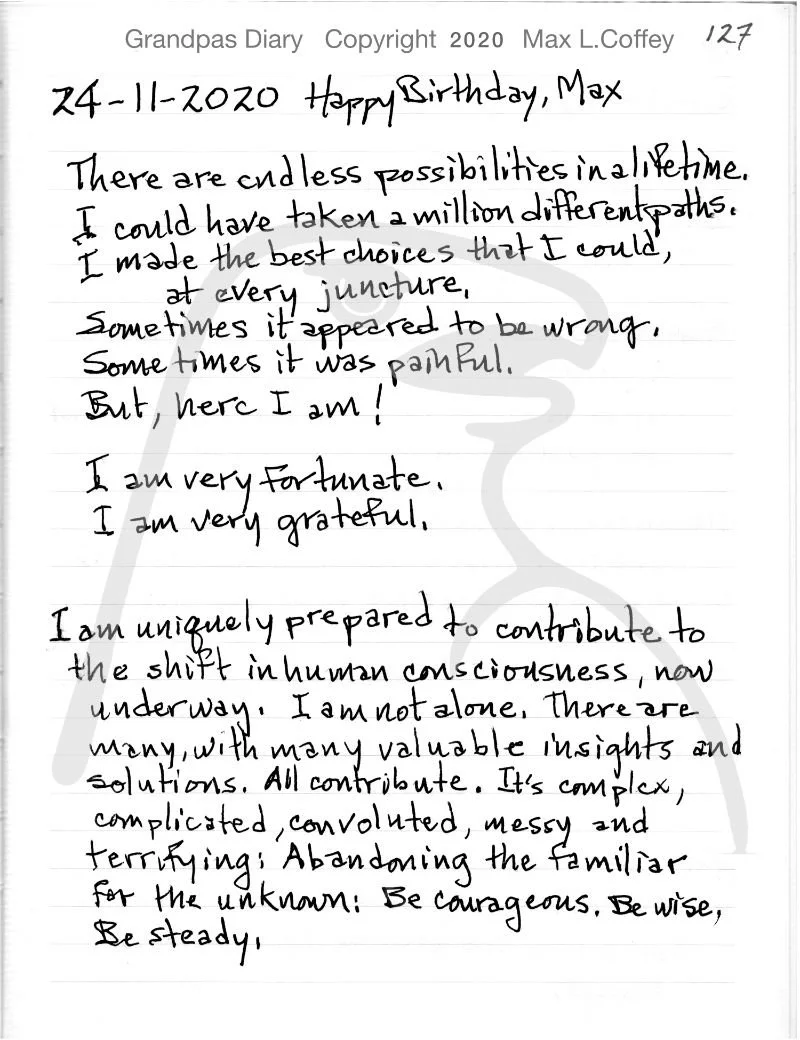 Grandpas Diary Copyright 2020 Max L.Coffey 127
24-11-2020 Happy Birthday, Max
There are endless possibilities in a lifetime.
I could have taken a million different paths.
I made the best choices that I could,
at every juncture,
Sometimes it appeared to be wrong.
Sometimes it was painful.
But, here I am!
I am very fortunate.
I am very grateful.
I am uniquely prepared to contribute to
the shift in human consciousness, now
underway. I am not alone. There are
many, with many valuable insights and
solutions. All contribute. It's complex,
complicated, convoluted, messy and
terrifying: Abandoning the familiar
for the unknown: Be courageous. Be wise,
Be steady.